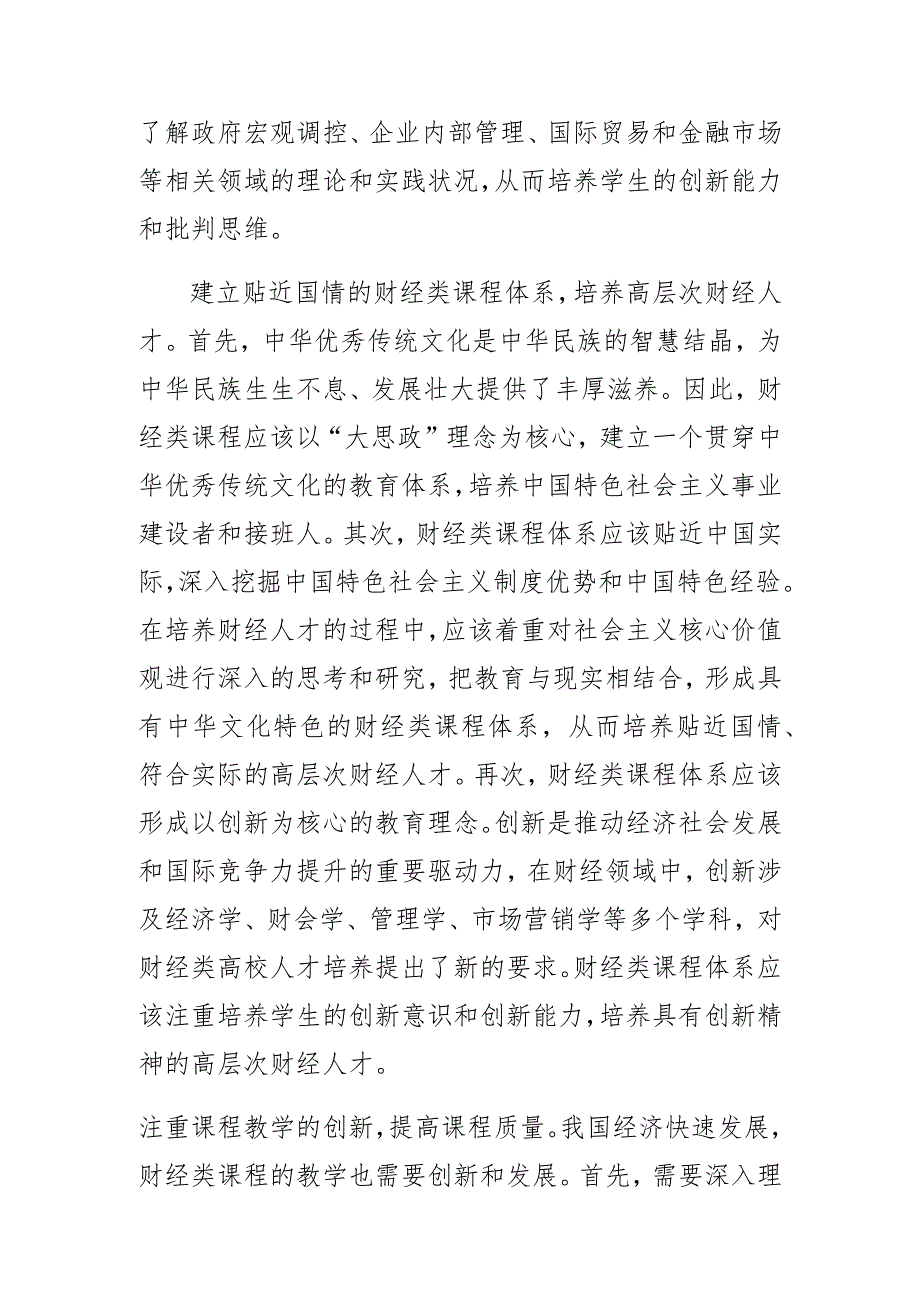 了解政府宏观调控、企业内部管理、国际贸易和金融市场
等相关领域的理论和实践状况，从而培养学生的创新能力
和批判思维。
建立贴近国情的财经类课程体系，培养高层次财经人
才。首先，中华优秀传统文化是中华民族的智慧结晶，为
中华民族生生不息、发展壮大提供了丰厚滋养。因此，财
经类课程应该以“大思政”理念为核心，建立一个贯穿中
华优秀传统文化的教育体系，培养中国特色社会主义事业
建设者和接班人。其次，财经类课程体系应该贴近中国实
际，深入挖掘中国特色社会主义制度优势和中国特色经验。
在培养财经人才的过程中，应该着重对社会主义核心价值
观进行深入的思考和研究，把教育与现实相结合，形成具
有中华文化特色的财经类课程体系，从而培养贴近国情、
符合实际的高层次财经人才。再次，财经类课程体系应该
形成以创新为核心的教育理念。创新是推动经济社会发展
和国际竞争力提升的重要驱动力，在财经领域中，创新涉
及经济学、财会学、管理学、市场营销学等多个学科，对
财经类高校人才培养提出了新的要求。财经类课程体系应
该注重培养学生的创新意识和创新能力，培养具有创新精
神的高层次财经人才。
注重课程教学的创新，提高课程质量。我国经济快速发展，
财经类课程的教学也需要创新和发展。首先，需要深入理